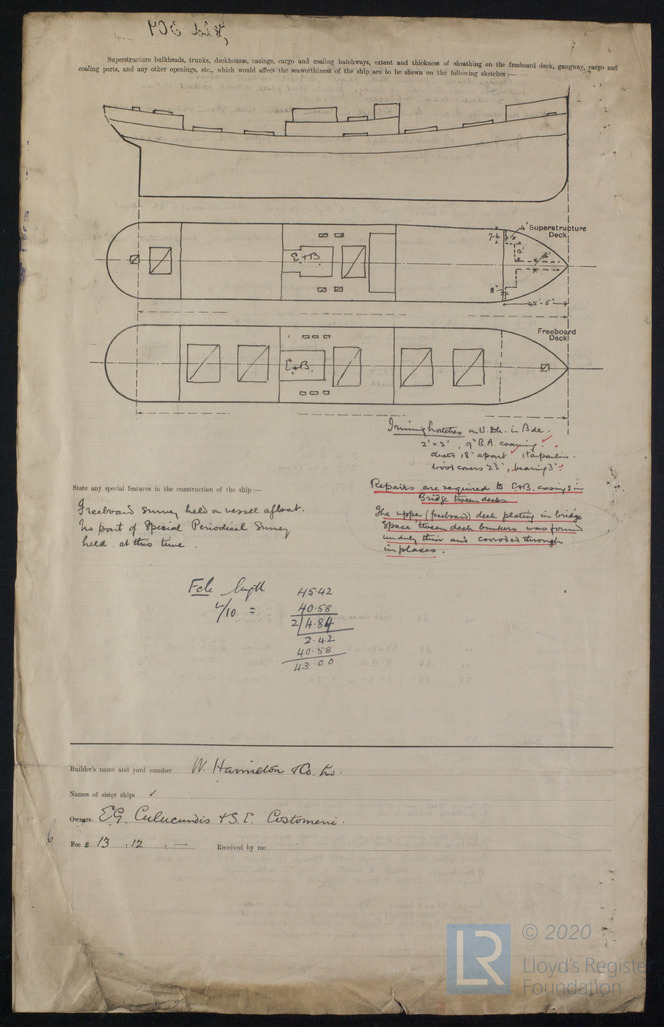 Superstructure bulkheads, trunks, deckhouses, casings, cargo and coaling hatchways, extent and thickness of sheathing on the freeboard deck, gangway, cargo and
coaling ports, and any other openings, etc., which would affect the seaworthiness of the ship are to be shewn on the following sketches:—
Superstructure
Deck.
E.+B.
45'-5"
Freeboard
Deck
E.+B.
Trimming hatches on U. Dk. in Bdge.
2' × 2', 9" B.A. coaming.
cleats 18" apart 1 tarpaulin.
wood covers 2½", bearing 3".
State any special features in the construction of the ship :—
Repairs are required to E+B. casings in
Bridge tween decks.
Freeboard Survey held on vessel afloat.
No part of Special Periodical Survey
held at this time.
The upper (freeboard) deck plating in bridge
space tween deck bunkers was found
unduly thin and corroded through
in places.
Fcle length 45.42
4/10 = 40.58
2 4.84
2.42
40.58
43.00
Builder's name and yard number W. Hamilton & Co. Ld.
Names of sister ships ✓
Owners E.G. Culucundis & S.C. Costomeni.
Fee £ 13 : 12 : — Received by me
6
LR
© 2020
Lloyd's Register
Foundation